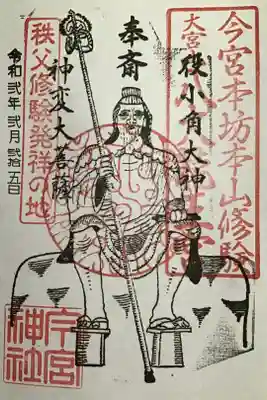 今宮本坊本山修験
大宮
役小角大神
奉斎
神変大菩薩
秩父修験発祥の地
令和弐年弐月弐拾五日
今宮神社